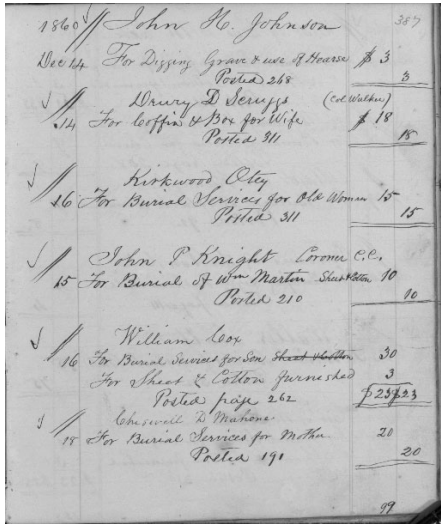 387
1860 // John H. Johnson
Dec 14 For Digging Grave & use of Hearse $ 3
Posted 268 3
Drury D Scruggs (Col Walker)
14 For Coffin & Box for Wife $ 18
Posted 311 18
Kirkwood Otey
16 For Burial Services for Old Woman 15
Posted 311 15
John P Knight Coroner C.C.
15 For Burial of Wm Martin Sheet & Cotton 10
Posted 210 10
William Cox
16 For Burial Services for Son Sheet & Cotton 30
For Sheet & Cotton furnished 3
Posted page 262 $23 $23
Chiswell D Mahone
18 For Burial Services for Mother 20
Posted 191 20
99